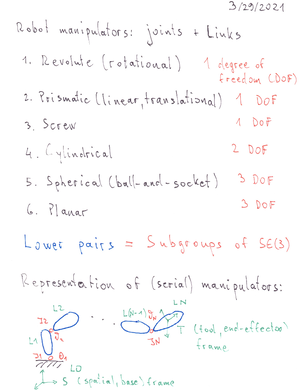 3/29/2021
Robot manipulators: joints + Links
1. Revolute (rotational) 1 degree of
freedom (DoF)
2. Prismatic (linear, translational) 1 DOF
3. Screw 1 DOF
4. Cylindrical 2 DOF
5. Spherical (ball-and-socket) 3 DOF
6. Planar 3 DOF
Lower pairs = Subgroups of SE(3)
Representation of (serial) manipulators:
L2 L(N-1) LN
J2 θ2
L1 JN T (tool, end-effector)
frame
J1 θ1
L0
S (spatial, base) frame